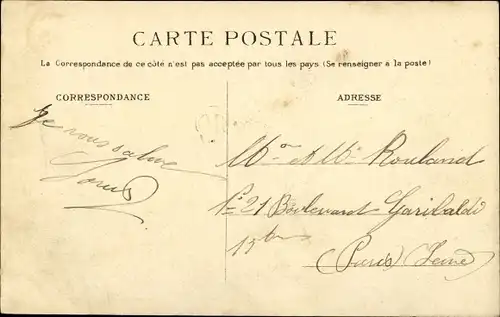 CARTE POSTALE
La Correspondance de ce côté n'est pas acceptée par tous les pays (Se renseigner à la poste)
CORRESPONDANCE
ADRESSE
Je vous salue
Mon et Me Rouland
No 21 Boulevard Garibaldi
15em
(Paris) (Seine)